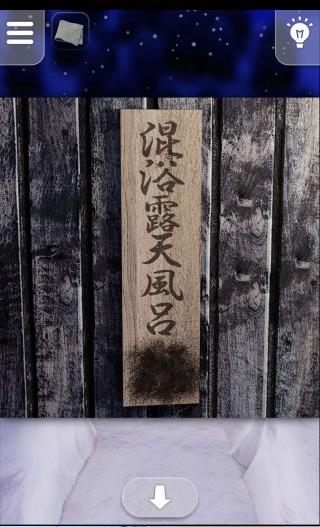 混浴露天風呂